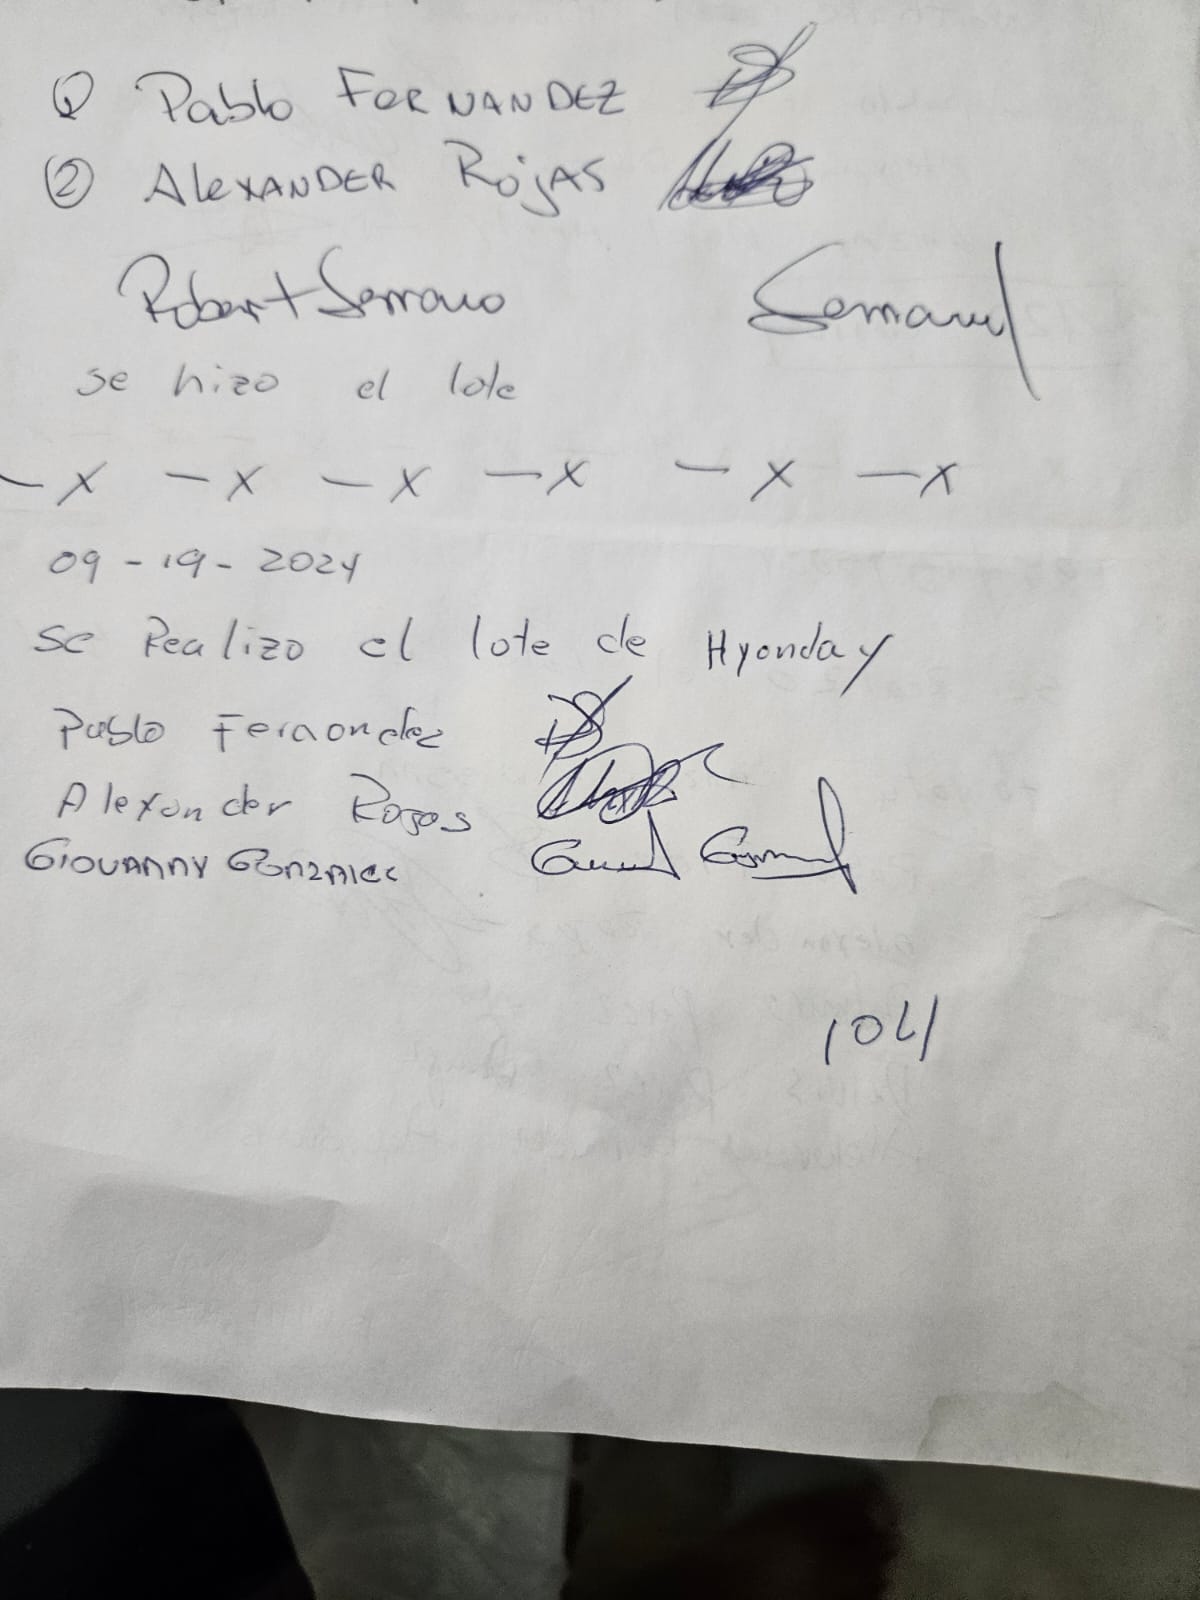 ① Pablo FERNANDEZ
② AleXANDER ROJAS
Robert Serrano
se hizo el lote
— X — X — X — X — X — X
09 - 19 - 2024
se Realizo el lote de Hyonday
Pablo Fernandez
Alexander Rojas
GIOVANNY GONZALEZ
104